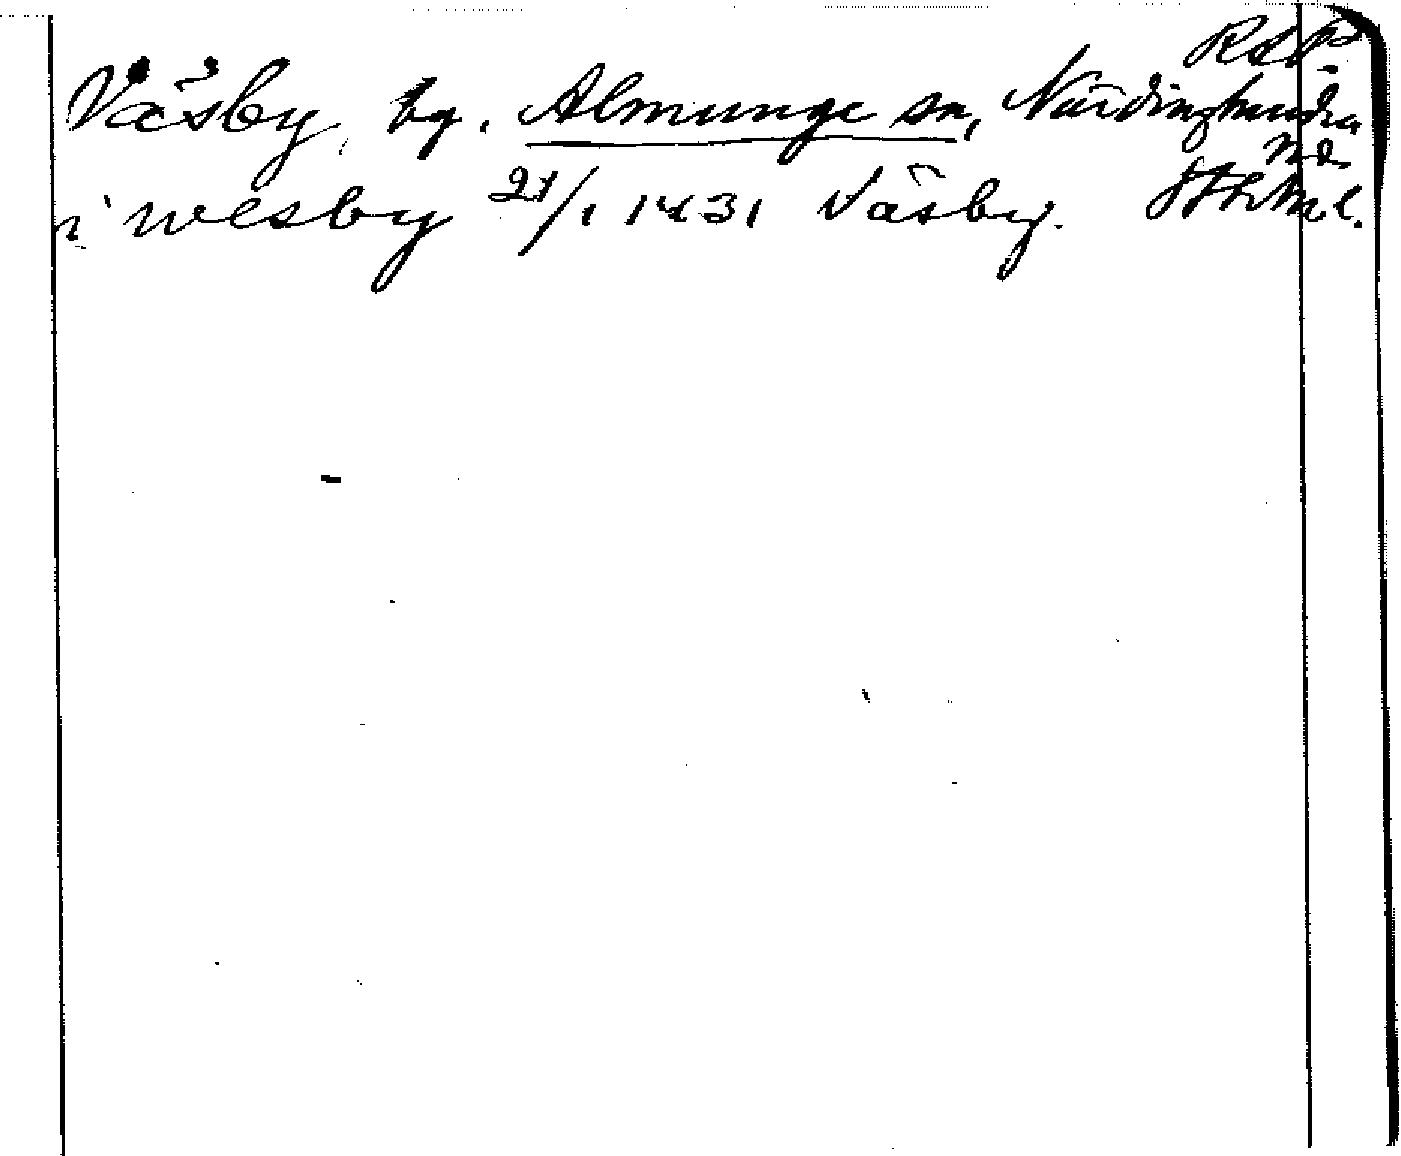 RAP.
Väsby, by, Almunge sn, Närdinghundra
hd
i wesby 21/1 1431 Väsby. Sthlm l.